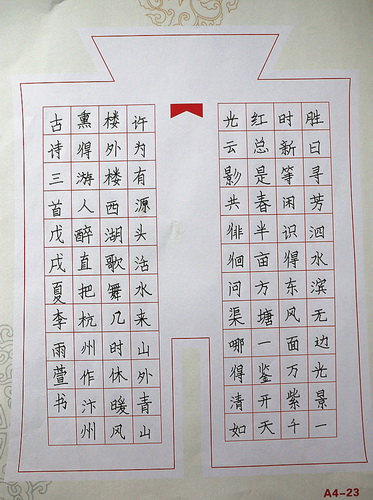 胜日寻芳泗水滨无边光景一
时新等闲识得东风面万紫千
红总是春半亩方塘一鉴开天
光云影共徘徊问渠哪得清如
许为有源头活水来山外青山
楼外楼西湖歌舞几时休暖风
熏得游人醉直把杭州作汴州
古诗三首戊戌夏李雨萱书
A4-23